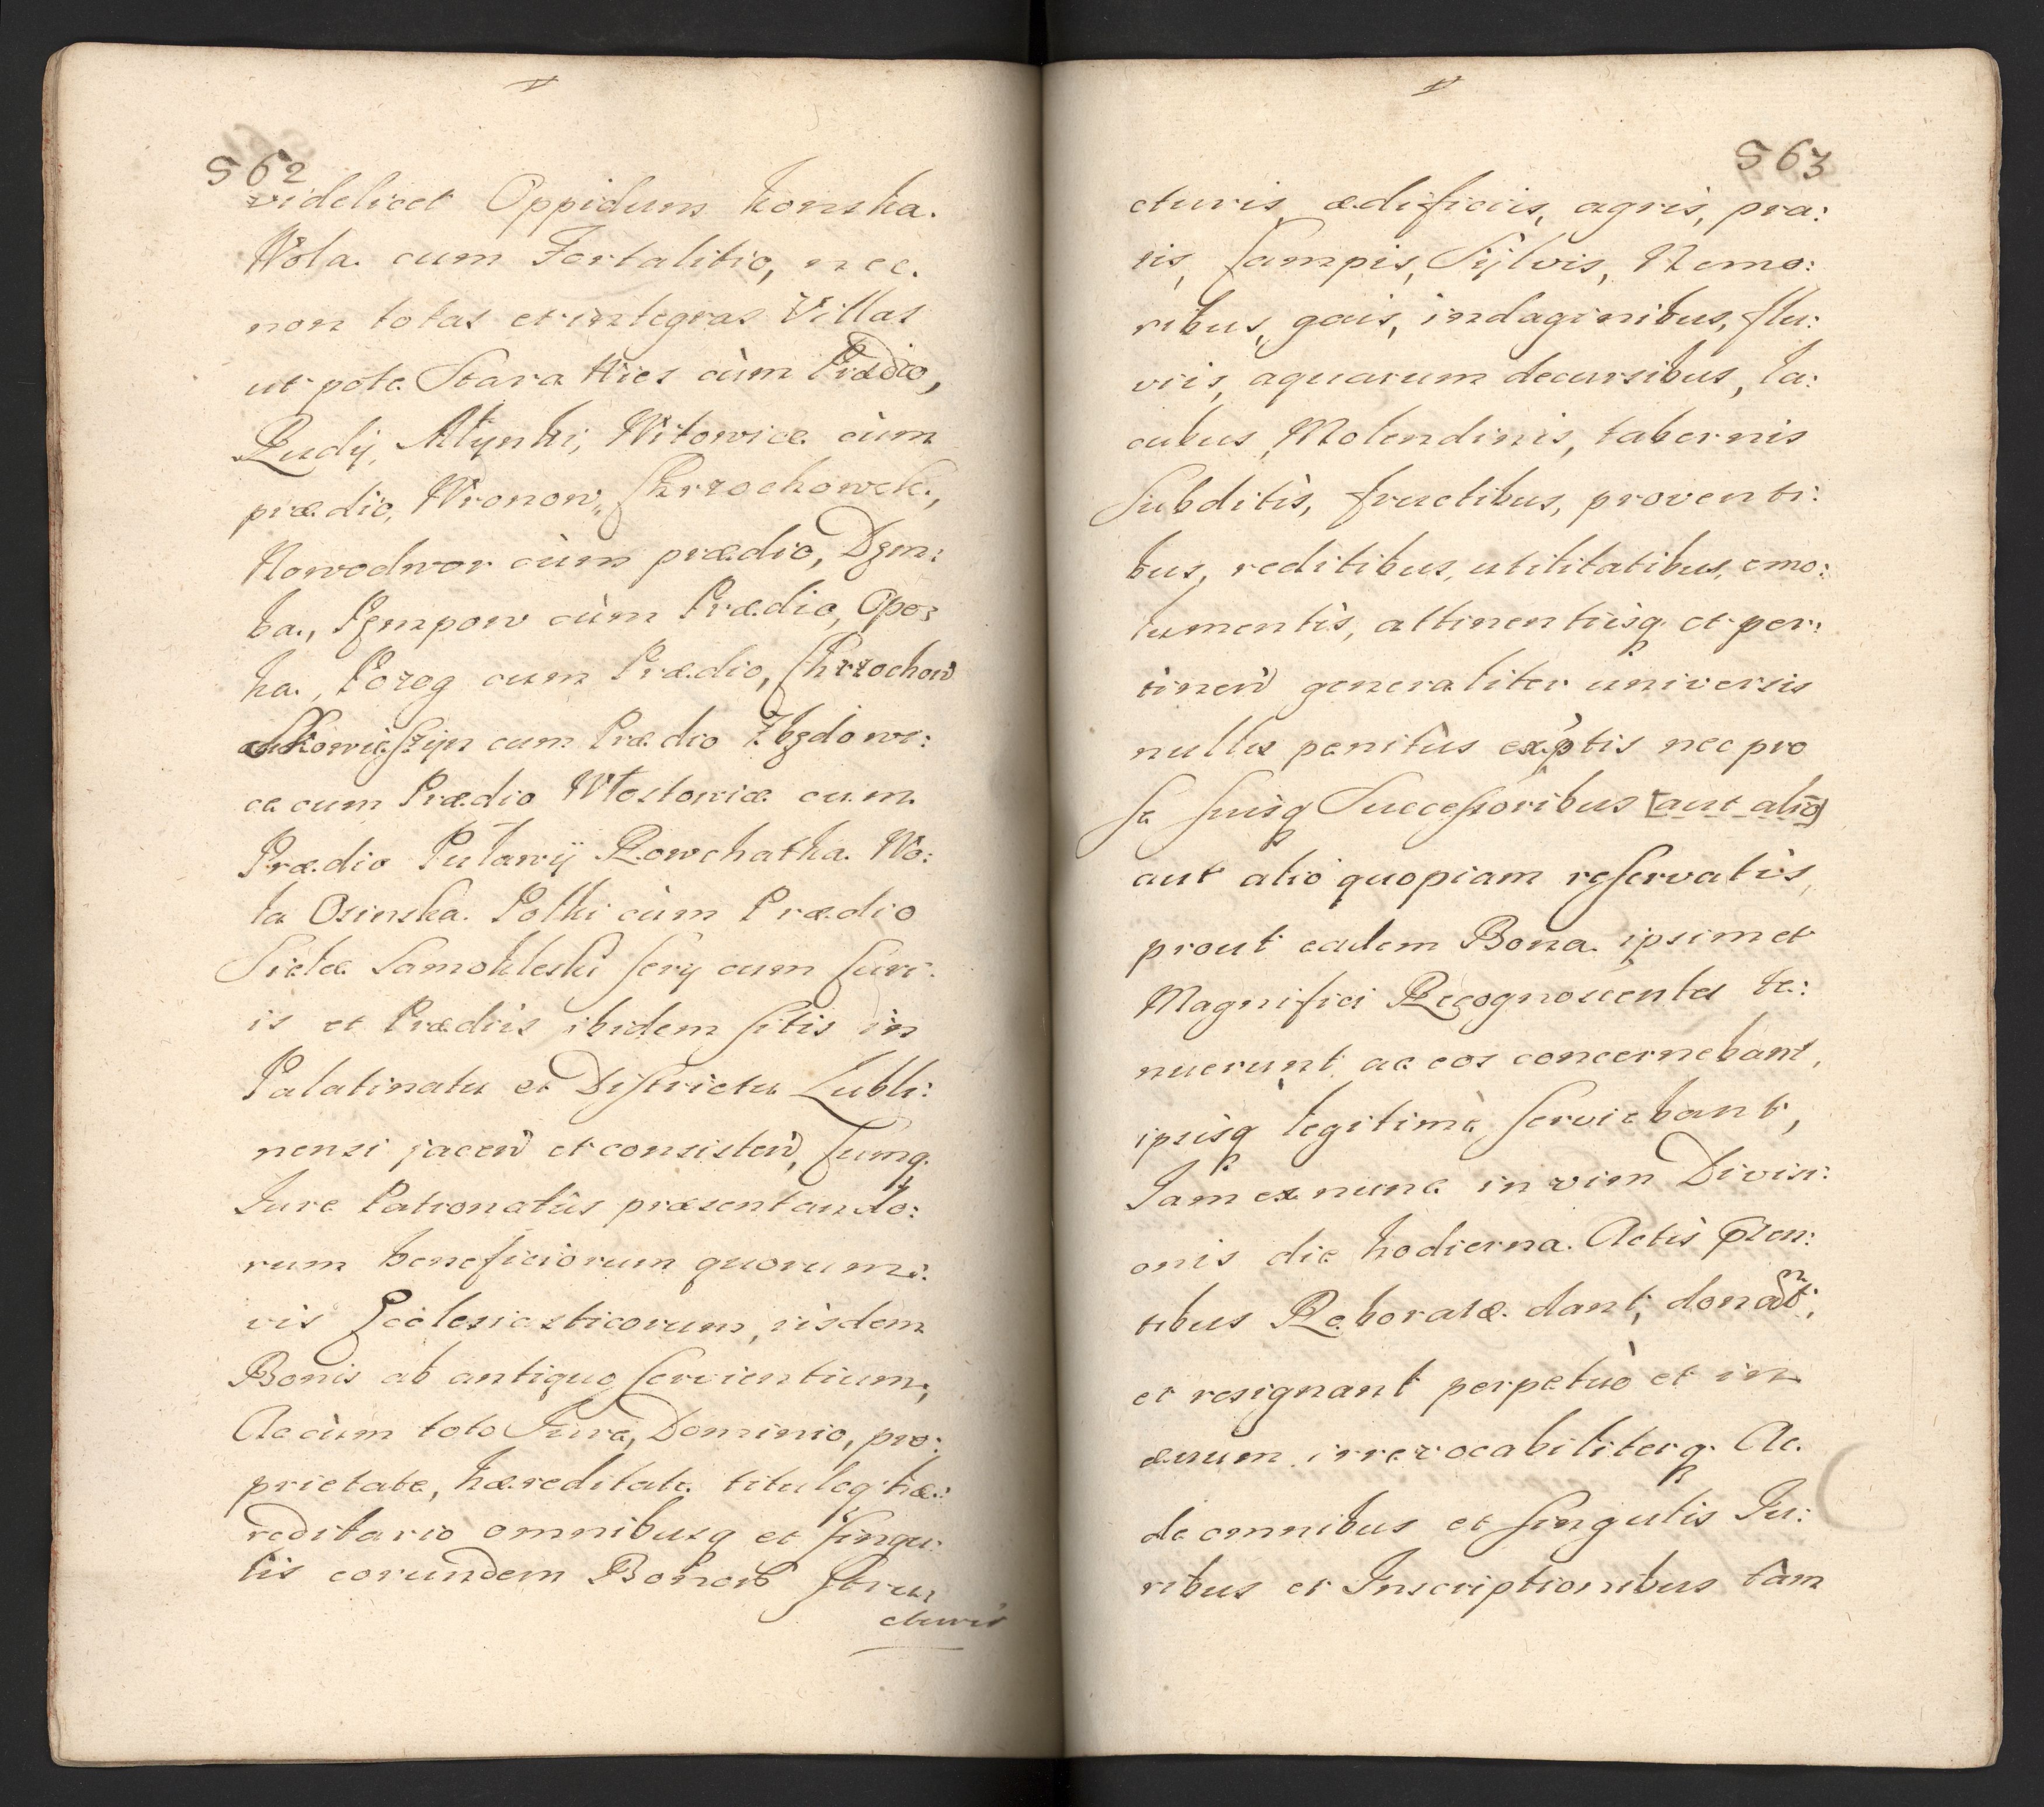 562
videlicet Oppidum Konska.
Wola cum Fortalitio, nec.
non totas et integras Villas
ut pote Stara Wies cùm Prædio,
Rudÿ, Młynki, Witowice cùm
prædio, Wronow, Chrzochowek,
Nowodwor cùm prædio, Dęm:
ba, Pęmpow cùm Prædio, Opo:
ka, Pozog cum Prædio, Chrzochow
Skowieszÿn cum Prædio Zbędowi:
ce cum Prædio Włostowice cum
Prædio Puławÿ Rowchatka Wo:
la Osinska Polki cùm Prædio
Sielce Samokleski cum Curi:
is et Prædiis ibidem sitis in
Palatinatu et Districtu Lubli:
nensi jacen̄ et consisten̄, Cumq
Jure Patronatûs præsentando:
rum beneficiorum quorum:
vis Ecclesiasticorum, iisdem
Bonis ab antiquo servientium,
Ac cùm toto Jure, Dominio, pro:
prietate, hæreditate tituloq hæ:
reditario omnibusq et singu:
lis eorundem Bonor̄ stru:
cturis
563
cturis ædificiis, agris, pra:
tis, Campis, Sÿlvis, Nemo:
ribus, gais, indaginibus, flu:
viis, aquarum decursibus, la:
cubus, Molendinis, tabernis
Subditis, fructibus, proventi:
bus, reditibus, utilitatibus, emo:
lumentis, attinentiisq et per:
tinen̄ generaliter universis
nullis penitùs exp̄tis nec pro
se suisq Successoribus [aut alio]
aut alio quopiam reservatis,
prout eadem Bona ipsimet
Magnifici Recognoscentes te:
nuerunt ac eos concernebant,
ipsisq legitimè serviebant,
Jam ex nunc in vim Divisi:
onis die hodierna Actis p̄sen:
tibus Roboratæ dant, donant,
et resignant perpetuò et in
ævum irrevocabiliterq Ac.
de omnibus et singulis Ju:
ribus et Inscriptionibus tàm